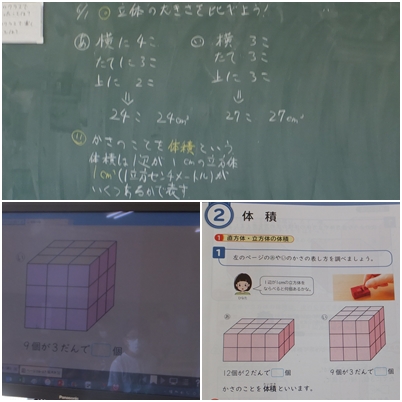 9/1 立体の大きさを比べよう!
あ 横に4こ
たてに3こ
上に 2こ
⇓
24こ 24cm³
い 横 3こ
たて 3こ
上に 3こ
⇓
27こ 27cm³
かさのことを体積という
体積は1辺が1cmの立方体
1cm³(1立方センチメートル)が
いくつあるかで表す
9個が3だんで 個
Panasonic
2 体積
1 直方体・立方体の体積
1 左のページのあやいのかさの表し方を調べましょう。
1辺が1cmの立方体を
ならべると何個あるかな。
あ
い
12個が2だんで 個
9個が3だんで 個
かさのことを体積といいます。